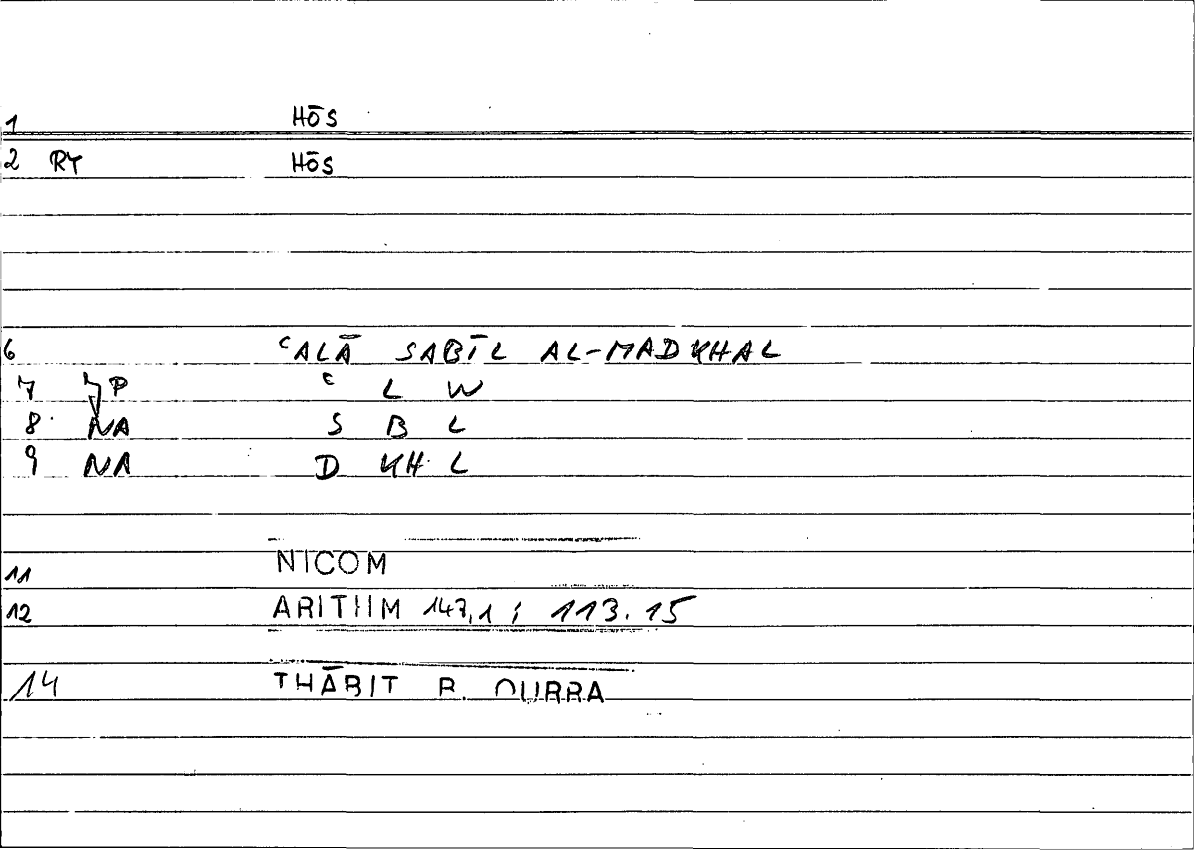 1 HŌS
2 RT HŌS
6 ʿALĀ SABĪL AL-MADKHAL
7 ʿ L W
8 NA S B L
9 NA D KH L
11 NICOM
12 ARITHM 147,1 ; 113.15
14 THĀBIT B. QURRA